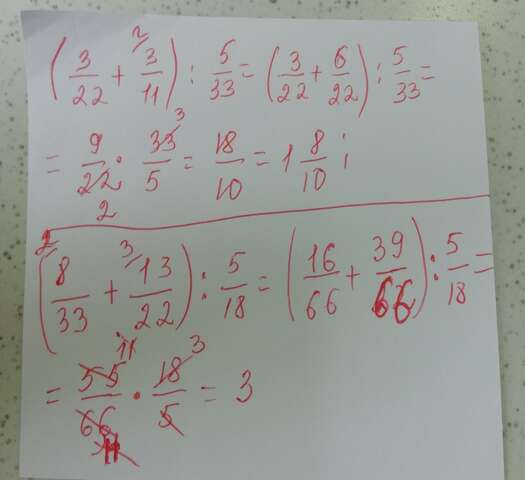 (3/22 + ²⁄3/11) : 5/33 = (3/22 + 6/22) : 5/33 =
= 9/22 · 33/5 = 18/10 = 1 8/10 ;
2 3
(8/33 + 13/22) : 5/18 = (16/66 + 39/66) : 5/18 =
2 3
= 55/66 · 18/5 = 3
11 3
11